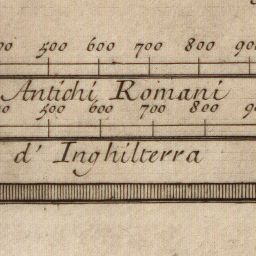 500 600 700 800
Antichi Romani
500 600 700 800
d' Inghilterra